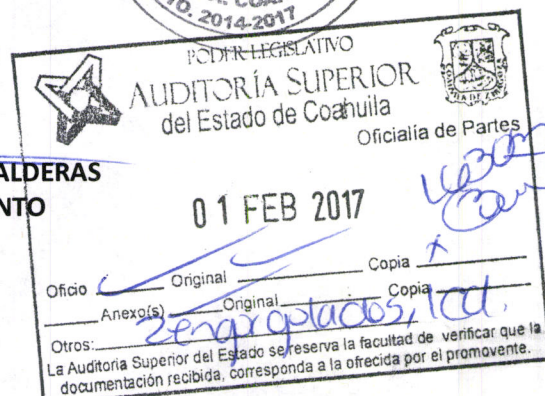 2014-2017
PODER LEGISLATIVO
AUDITORÍA SUPERIOR
del Estado de Coahuila
Oficialía de Partes
ALDERAS
NTO
01 FEB 2017
Oficio Original Copia X
Anexo(s) Original Copia
Otros: 2 engargolados, 1 cd.
La Auditoria Superior del Estado se reserva la facultad de verificar que la
documentación recibida, corresponda a la ofrecida por el promovente.